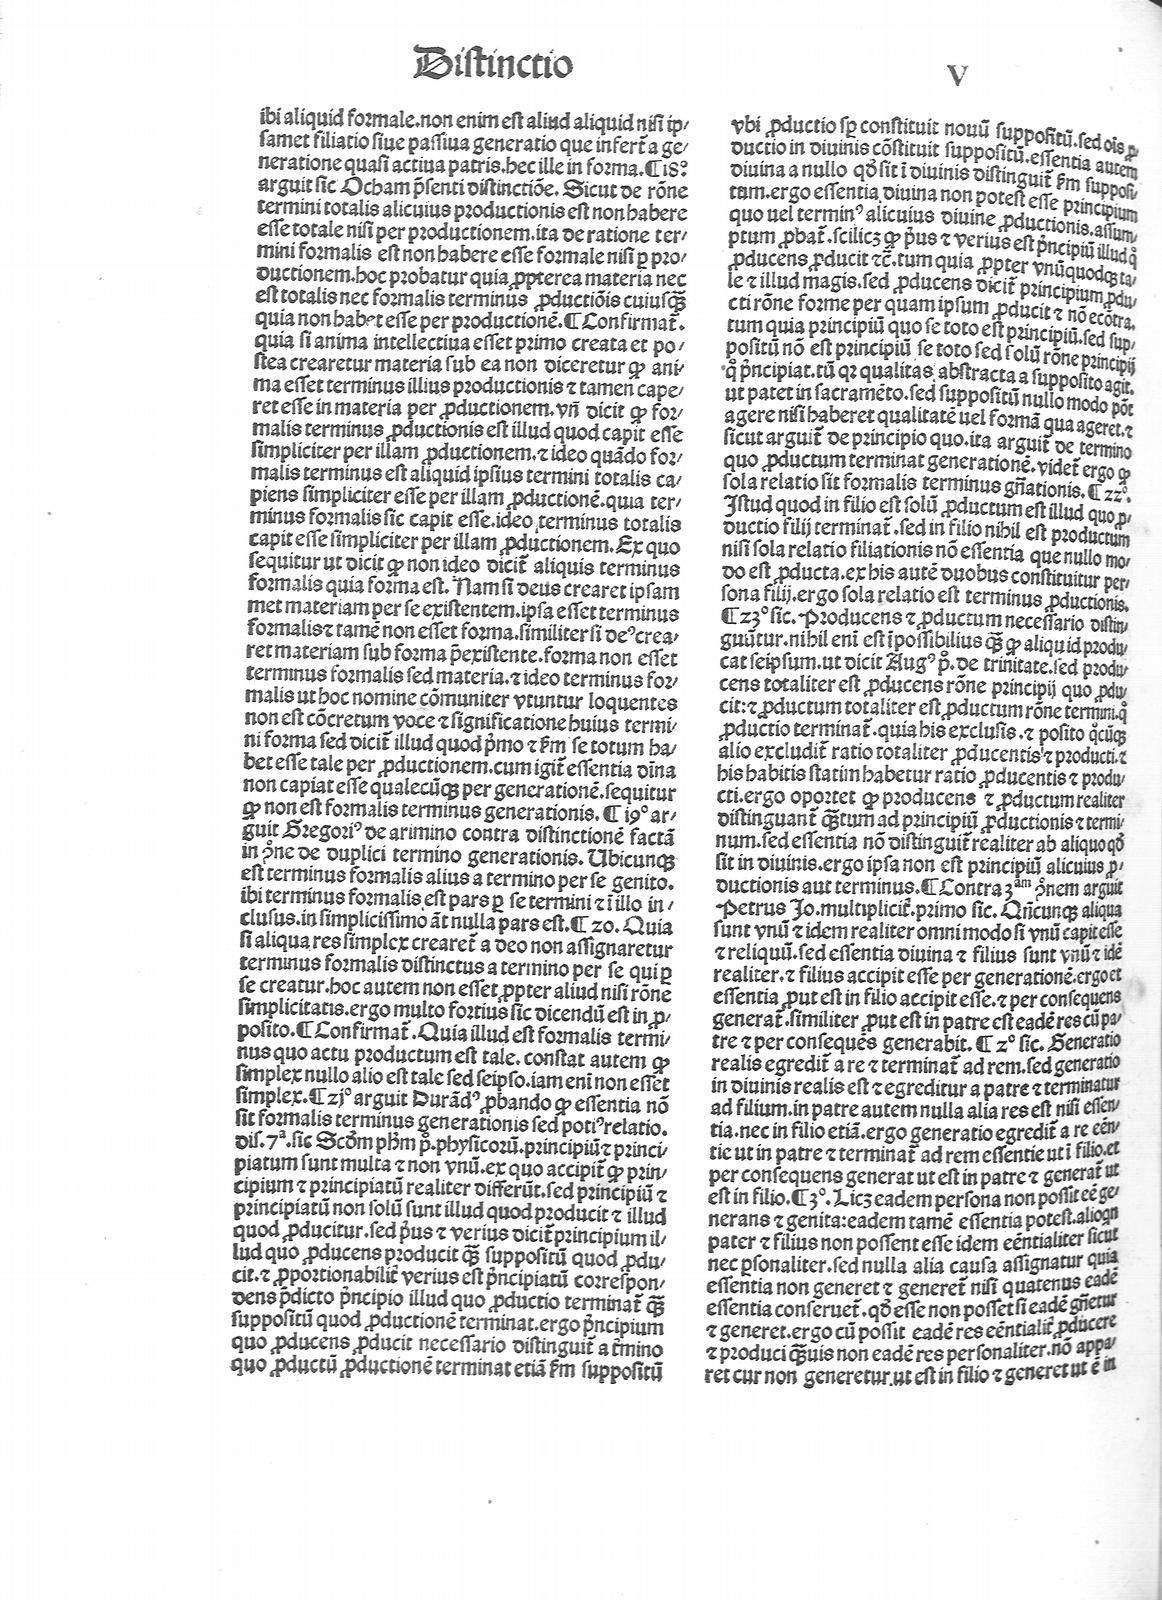 Distinctio
V
ibi aliquid formale.non enim est aliud aliquid nisi ip/
samet filiatio siue passiua generatio que infert̃ a ge/
neratione quasi actiua patris.hec ille in forma.¶18°
arguit sic Ocham p̃senti distinctiõe. Sicut de rõne
termini totalis alicuius productionis est non habere
esse totale nisi per productionem.ita de ratione ter/
mini formalis est non habere esse formale nisi ꝑ pro/
ductionem.hoc probatur quia ꝓpterea materia nec
est totalis nec formalis terminus ꝓductiõis cuiusqꝫ
quia non habet esse per productionẽ.¶Confirmat̃.
quia si anima intellectiua esset primo creata et po/
stea crearetur materia sub ea non diceretur ꝙ ani/
ma esset terminus illius productionis ⁊ tamen cape/
ret esse in materia per ꝓductionem.vñ dicit ꝙ for/
malis terminus ꝓductionis est illud quod capit esse
simpliciter per illam ꝓductionem.⁊ ideo quãdo for/
malis terminus est aliquid ipsius termini totalis ca/
piens simpliciter esse per illam ꝓductionẽ.quia ter/
minus formalis sic capit esse.ideo terminus totalis
capit esse simpliciter per illam ꝓductionem.Ex quo
sequitur ut dicit ꝙ non ideo dicit̃ aliquis terminus
formalis quia forma est. Nam si deus crearet ipsam
met materiam per se existentem.ipsa esset terminus
formalis⁊ tamẽ non esset forma.similiter si deꝰ crea/
ret materiam sub forma p̃existente.forma non esset
terminus formalis sed materia.⁊ ideo terminus for/
malis ut hoc nomine cõmuniter vtuntur loquentes
non est cõcretum voce ⁊ significatione huius termi/
ni forma sed dicit̃ illud quod p̃mo ⁊ s̃m se totum ha/
bet esse tale per ꝓductionem.cum igit̃ essentia diĩna
non capiat esse qualecũqꝫ per generationẽ.sequitur
ꝙ non est formalis terminus generationis.¶19° ar/
guit Gregoriꝰ de arimino contra distinctionẽ factã
in ꝯne de duplici termino generationis. Ubicunqꝫ
est terminus formalis alius a termino per se genito.
ibi terminus formalis est pars ꝑ se termini ⁊ ĩ illo in/
clusus.in simplicissimo ãt nulla pars est.¶20. Quia
si aliqua res simplex crearet̃ a deo non assignaretur
terminus formalis distinctus a termino per se qui ꝑ
se creatur.hoc autem non esset ꝓpter aliud nisi rõne
simplicitatis.ergo multo fortius sic dicendũ est in ꝓ/
posito.¶Confirmat̃.Quia illud est formalis termi/
nus quo actu productum est tale. constat autem ꝙ
simplex nullo alio est tale sed seipso.iam eni non esset
simplex.¶21° arguit Durãdꝰ ꝓbando ꝙ essentia nõ
sit formalis terminus generationis sed potiꝰ relatio.
dis.7ª.sic Scd̃m ph̃m p̊.physicorũ.principiũ⁊ princi/
piatum sunt multa ⁊ non vnũ.ex quo accipit̃ ꝙ prin/
cipium ⁊ principiatũ realiter differũt.sed principiũ ⁊
principiatũ non solũ sunt illud quod producit ⁊ illud
quod ꝓducitur.sed p̃us ⁊ verius dicit̃ principium il/
lud quo ꝓducens producit qꝫ suppositũ quod ꝓdu/
cit.⁊ ꝓportionabilit̃ verius est p̃ncipiatũ correspon/
dens p̃dicto p̃ncipio illud quo ꝓductio terminat̃ qꝫ
suppositũ quod ꝓductionẽ terminat.ergo p̃ncipium
quo ꝓducens ꝓducit necessario distinguit̃ a t̃mino
quo ꝓductũ ꝓductionẽ terminat etiã s̃m suppositũ
vbi ꝓductio sꝑ constituit nouũ suppositũ.sed ois ꝓ/
ductio in diuinis cõstituit suppositũ.essentia autem
diuina a nullo qð sit ĩ diuinis distinguit̃ s̃m supposi/
tum.ergo essentia diuina non potest esse principium
quo uel terminꝰ alicuius diuine ꝓductionis.assum/
ptum ꝓbat̃.scilicꝫ ꝙ p̃us ⁊ verius est p̃ncipiũ illud q̊
ꝓducens ꝓducit ⁊c̃.tum quia ꝓpter vnũquodqꝫ ta/
le ⁊ illud magis.sed ꝓducens dicit̃ principium ꝓdu/
cti rõne forme per quam ipsum ꝓducit ⁊ nõ ecõtra.
tum quia principiũ quo se toto est principiũ.sed sup/
positũ nõ est principiũ se toto sed solũ rõne principij
q̊ p̃ncipiat.tũ qꝛ qualitas abstracta a supposito agit.
ut patet in sacramẽto.sed suppositũ nullo modo põt
agere nisi haberet qualitatẽ uel formã qua ageret.⁊
sicut arguit̃ de principio quo.ita arguit̃ de termino
quo ꝓductum terminat generationẽ.videt̃ ergo ꝙ
sola relatio sit formalis terminus gñationis.¶22°.
Istud quod in filio est solũ ꝓductum est illud quo ꝓ/
ductio filij terminat̃.sed in filio nihil est productum
nisi sola relatio filiationis nõ essentia que nullo mo/
do est ꝓducta.ex his autẽ duobus constituitur per/
sona filij.ergo sola relatio est terminus ꝓductionis.
¶23° sic. Producens ⁊ ꝓductum necessario distin/
guũtur.nihil eni est ĩpossibilius qꝫ ꝙ aliquid produ/
cat seipsum.ut dicit Augꝰ p̊. de trinitate.sed produ/
cens totaliter est ꝓducens rõne principij quo ꝓdu/
cit:⁊ ꝓductum totaliter est ꝓductum rõne termini.q̊
ꝓductio terminat̃.quia his exclusis.⁊ posito q̊cũqꝫ
alio excludit̃ ratio totaliter ꝓducentis ⁊ producti.⁊
his habitis statim habetur ratio ꝓducentis ⁊ produ/
cti.ergo oportet ꝙ producens ⁊ ꝓductum realiter
distinguant̃ qꝫtum ad principiũ ꝓductionis ⁊ termi/
num.sed essentia nõ distinguit̃ realiter ab aliquo qð
sit in diuinis.ergo ipsa non est principiũ alicuius ꝓ/
ductionis aut terminus.¶Contra 3am ꝯnem arguit
Petrus Jo.multiplicit̃.primo sic. Qñcunqꝫ aliqua
sunt vnũ ⁊ idem realiter omni modo si vnũ capit esse
⁊ reliquũ.sed essentia diuina ⁊ filius sunt vnũ ⁊ idẽ
realiter.⁊ filius accipit esse per generationẽ.ergo et
essentia ꝓut est in filio accipit esse.⁊ per consequens
generat̃.similiter ꝓut est in patre est eadẽ res cũ pa/
tre ⁊ per consequẽs generabit.¶2° sic. Generatio
realis egredit̃ a re ⁊ terminat̃ ad rem.sed generatio
in diuinis realis est ⁊ egreditur a patre ⁊ terminatur
ad filium.in patre autem nulla alia res est nisi essen/
tia.nec in filio etiã.ergo generatio egredit̃ a re eẽn/
tie ut in patre ⁊ terminat̃ ad rem essentie ut ĩ filio.et
per consequens generat ut est in patre ⁊ generat̃ ut
est in filio.¶3°. Licꝫ eadem persona non possit eẽ ge/
nerans ⁊ genita:eadem tamẽ essentia potest.alioqn
pater ⁊ filius non possent esse idem eẽntialiter sicut
nec ꝑsonaliter.sed nulla alia causa assignatur quia
essentia non generet ⁊ generet̃ nisi quatenus eadẽ
essentia conseruet̃.qð esse non posset si eadẽ gñetur
⁊ generet.ergo cũ possit eadẽ res eẽntialit̃ ꝓducere
⁊ produci qꝫuis non eadẽ res personaliter.nõ appa/
ret cur non generetur.ut est in filio ⁊ generet ut ẽ in